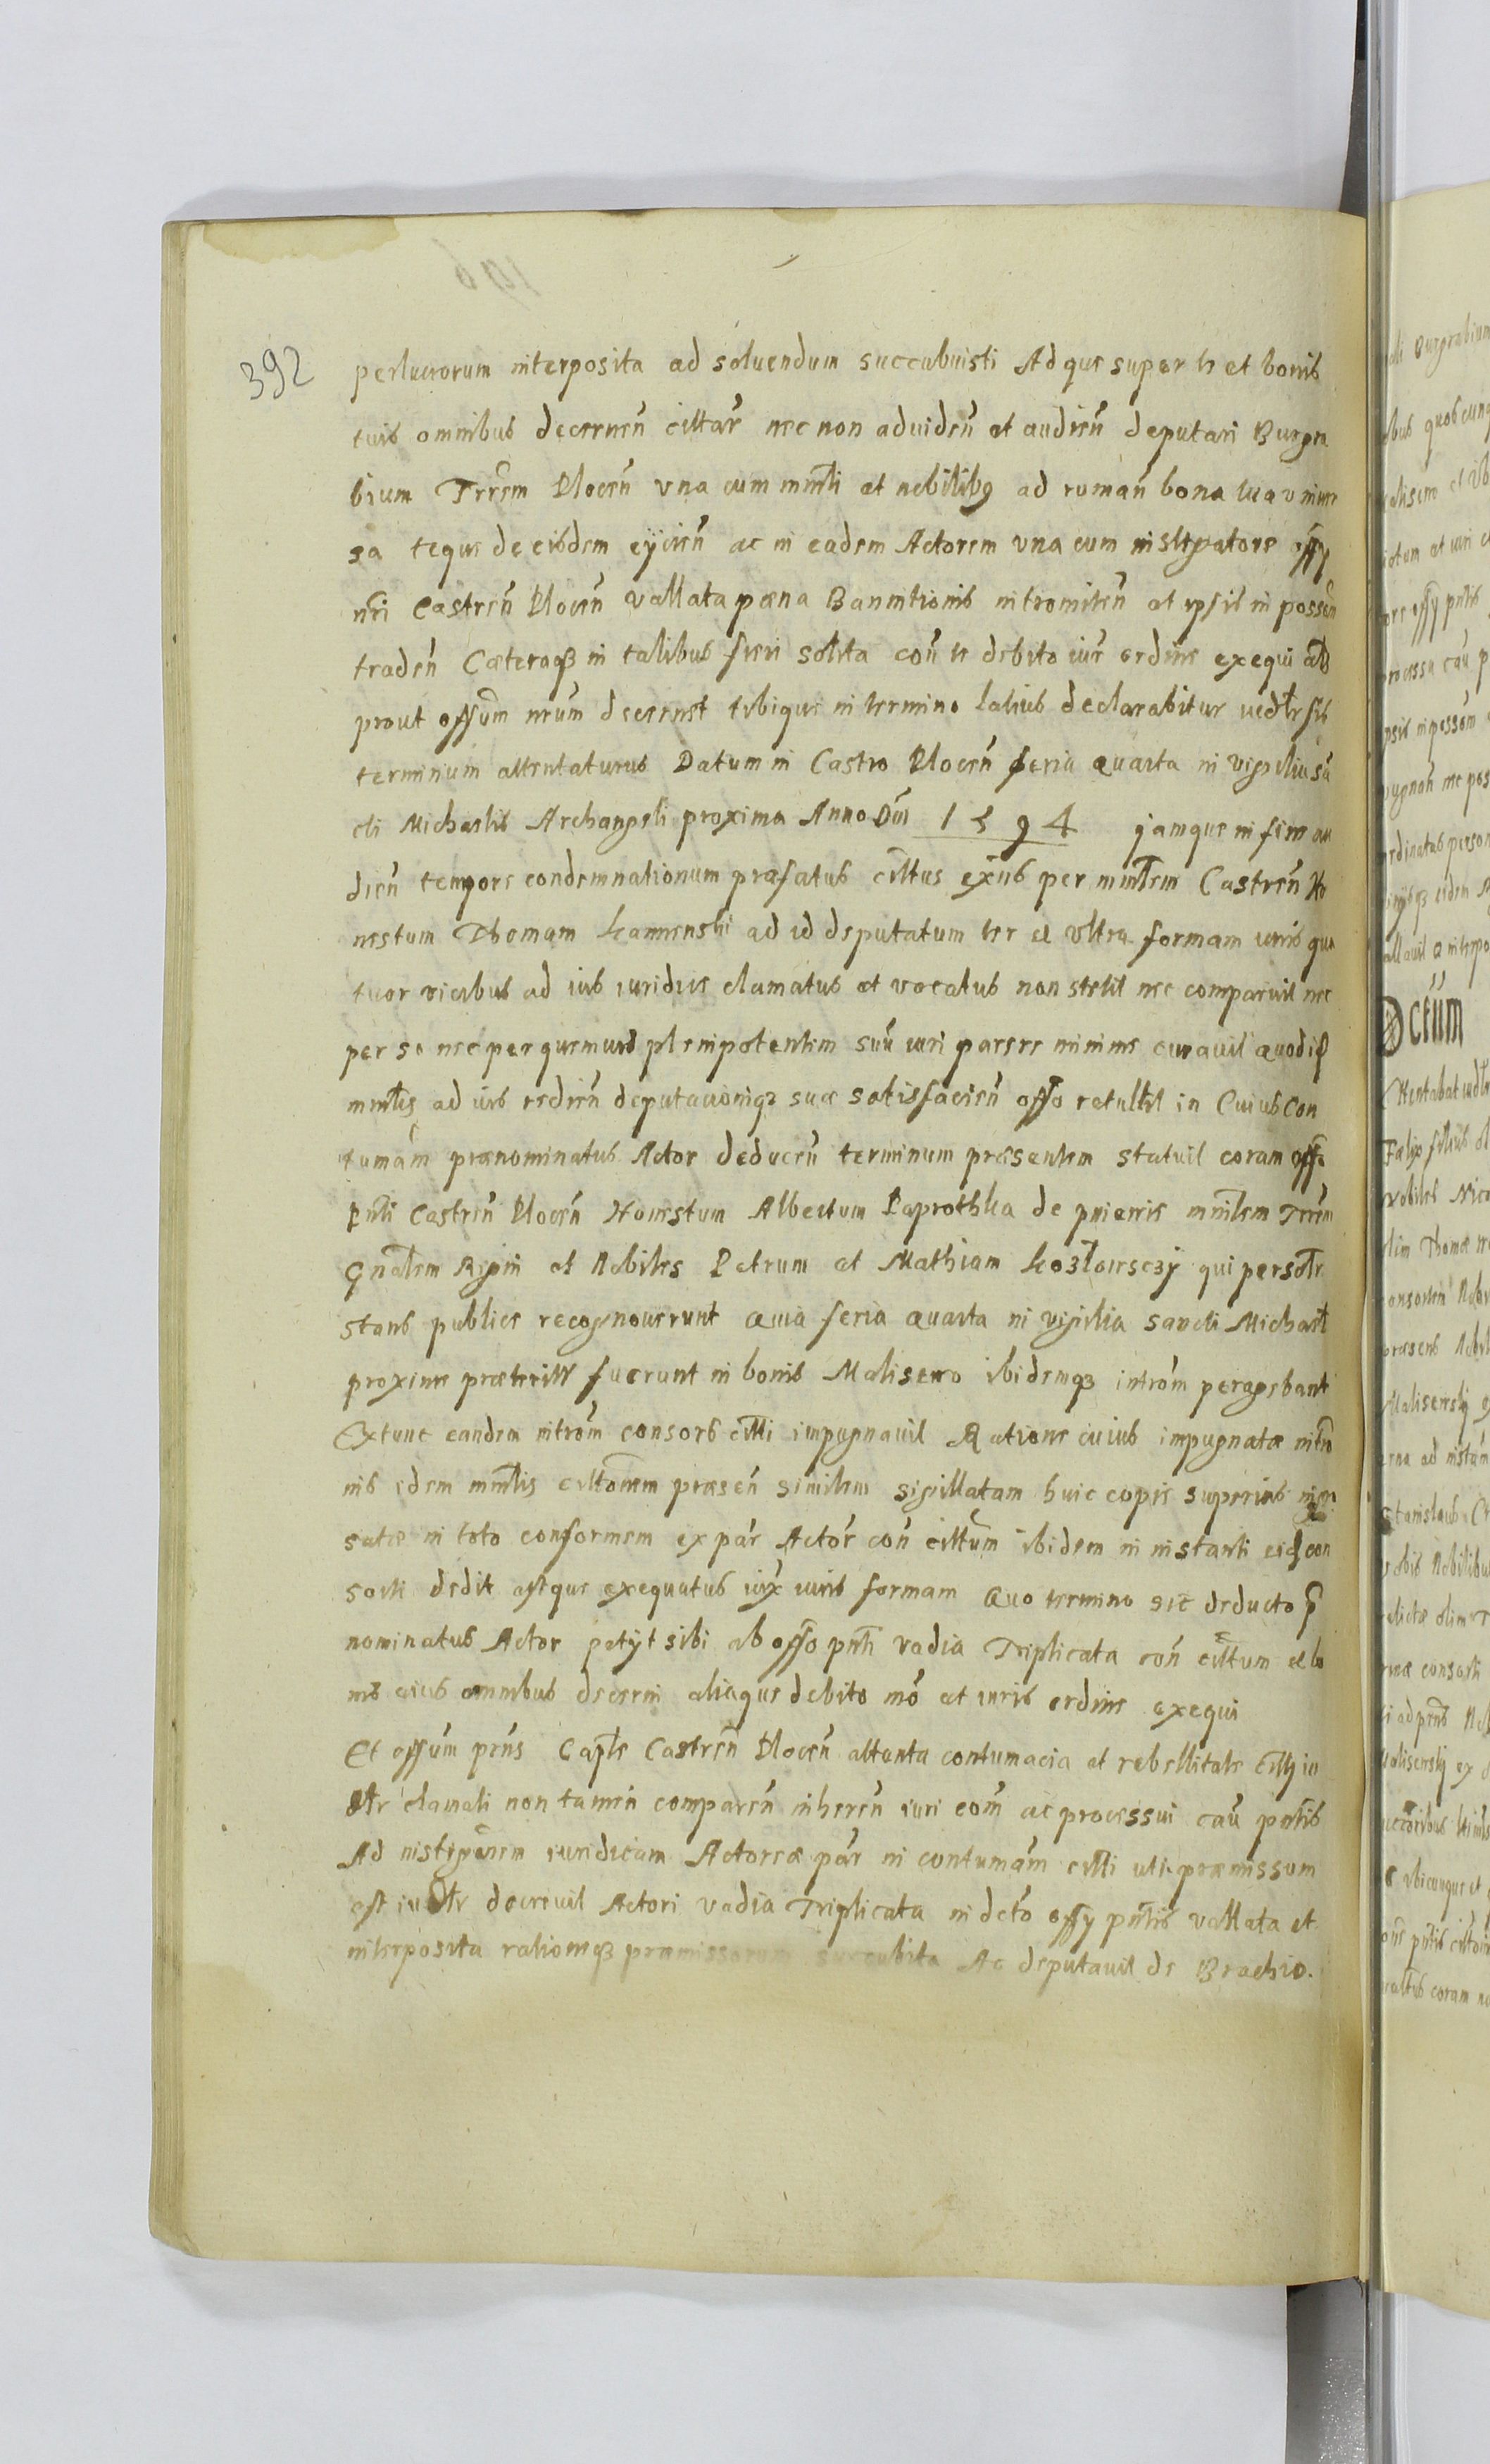 392
perlucrorum interposita ad soluendum succubuisti Adque super te et bonis
tuis omnibus decernen̄ cittar̄ nec non aduiden̄ et audien̄ deputari Burgra
bium Trr̄em Plocen̄ vna cum mnr̄li et nobilibq ad ruman̄ bona tua vniuer
sa teque de eisdem eÿcien̄ ac in eadem Actorem vna cum instigatore offÿ
nr̄i Castren̄ Plocen̄ vallata pæna Bannitionis intromiten̄ et ipsis in possen̄
traden̄ Cæteraqʒ in talibus fieri solita con̄ te debito iur̄ ordine exequi
prout offūm nrūm decernet tibique in termino latius declarabitur iudlr sis
terminum attentaturus Datum in Castro Plocen̄ feria quarta in vigilia sā
cti Michaelis Archangeli proxima Anno Dni 1594 jamque in fine au
dien̄ tempore condemnationum præfatus cittus exn̄s per mnlr̄em Castren̄ Ho
nestum Thomam Kamenski ad id deputatum ter et vltra formam iuris qua
tuor vicibus ad ius iuridice clamatus et vocatus non stetit nec comparuit nec
per se nec per quemuis plenipotentem suū iuri parere minime curauit quod id
mnlr̄is ad ius redien̄ deputationiqʒ suæ satisfacien̄ offo retullit in Cuius Con
tumām prænominatus Actor deducen̄ terminum præsentem statuit coram offo
pn̄ti Castren̄ Plocen̄ Honestum Albertum Paprothka de pnierre mnlr̄em Trr̄em
Gnālem Regni et Nobiles Petrum et Mathiam Kozłowsczÿ qui personlr
stans publice recognouerunt quia feria quarta in vigilia sancti Michael
proxime præterita fuerunt in bonis Malisewo ibidemqʒ introm̄ peragebant
Extunc eandem introm̄ consors citti impugnauit Ratione cuius impugnatæ intro
nis idem mnlr̄is cittonem præsen̄ similem sigillatam huic copie superius inser
satæ in toto conformem ex par̄ Actor̄ con̄ cittum ibidem in instanti eid con
sorti dedit estque exequutus iux̄ iuris formam Quo termino sic deducto p̄
nominatus Actor petÿt sibi ab offo pn̄ti vadia Triplicata con̄ cittum et bo
nis eius omnibus decerni aliaque debito mō et iuris ordine exequi
Et offūm pn̄s Caple Castren̄ Plocen̄ attenta contumacia et rebellitate citti iu
dlr clamati non tamen comparen̄ inheren̄ iuri coīm ac processui cau̅ pn̄tis
Ad instigōnem iuridicam Actoreæ par̄ in contumām citti uti præmissum
est iudlr decreuit Actori vadia Triplicata in dcto offÿ pn̄tis vallata et
interposita rationeqʒ præmissorum succubita Ac deputauit de Brachio.